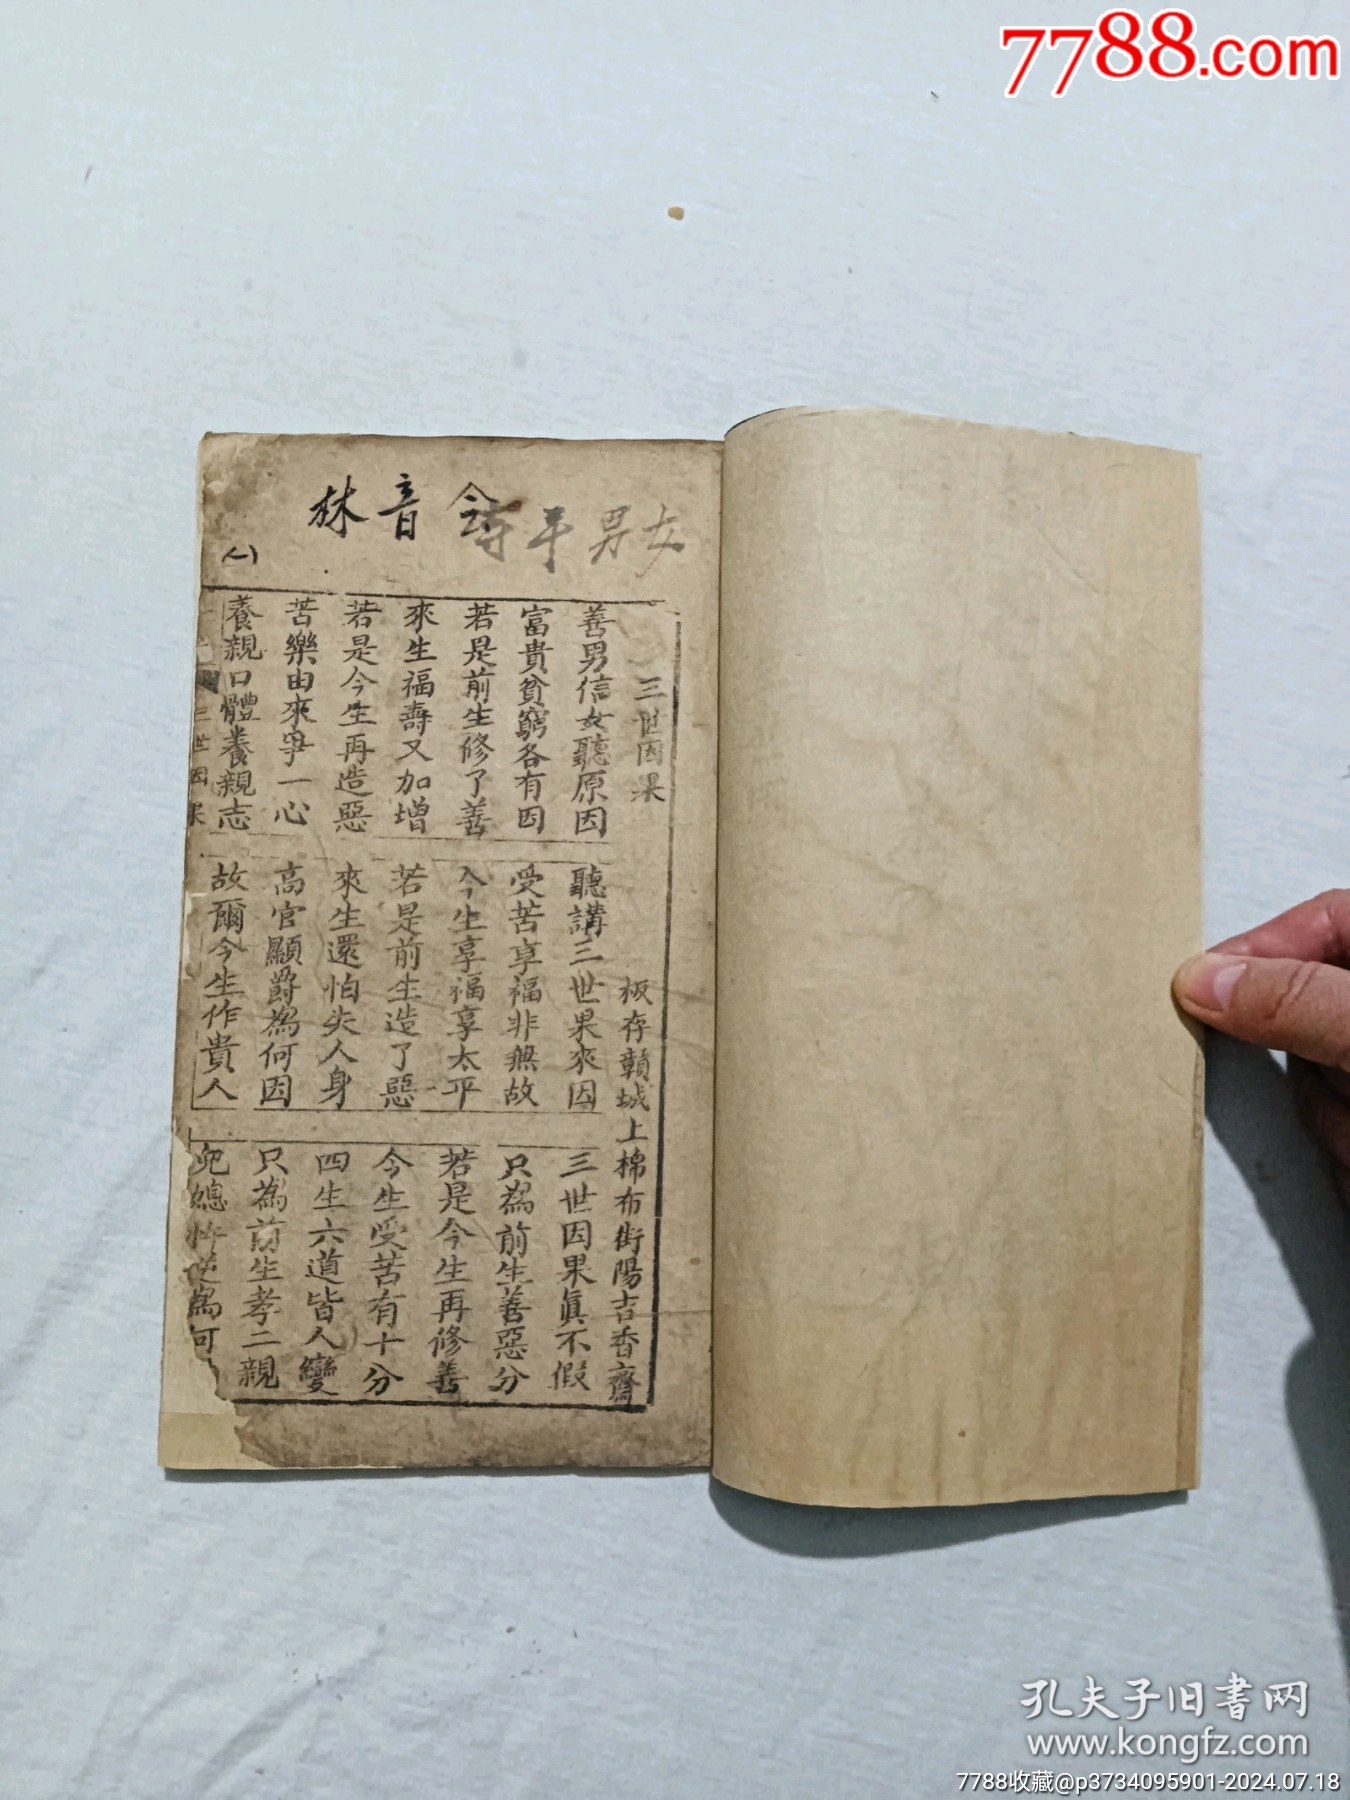 林音
平男女
(一)
三世因果
板存贛城上棉布街陽吉香齋
善男信女聽原因
聽講三世果來因
三世因果眞不假
富貴貧窮各有因
受苦享福非無故
只為前生善惡分
若是前生修了善
今生享福享太平
若是今生再修善
來生福壽又加增
若是前生造了惡
今生受苦有十分
若是今生再造惡
來生還怕失人身
四生六道皆人變
苦樂由來爭一心
高官顯爵為何因
只為前生孝二親
養親口體養親志
故爾今生作貴人
兒媳忤逆為何
三世因果
7788.com
孔夫子旧書网
www.kongfz.com
7788收藏@p3734095901-2024.07.18